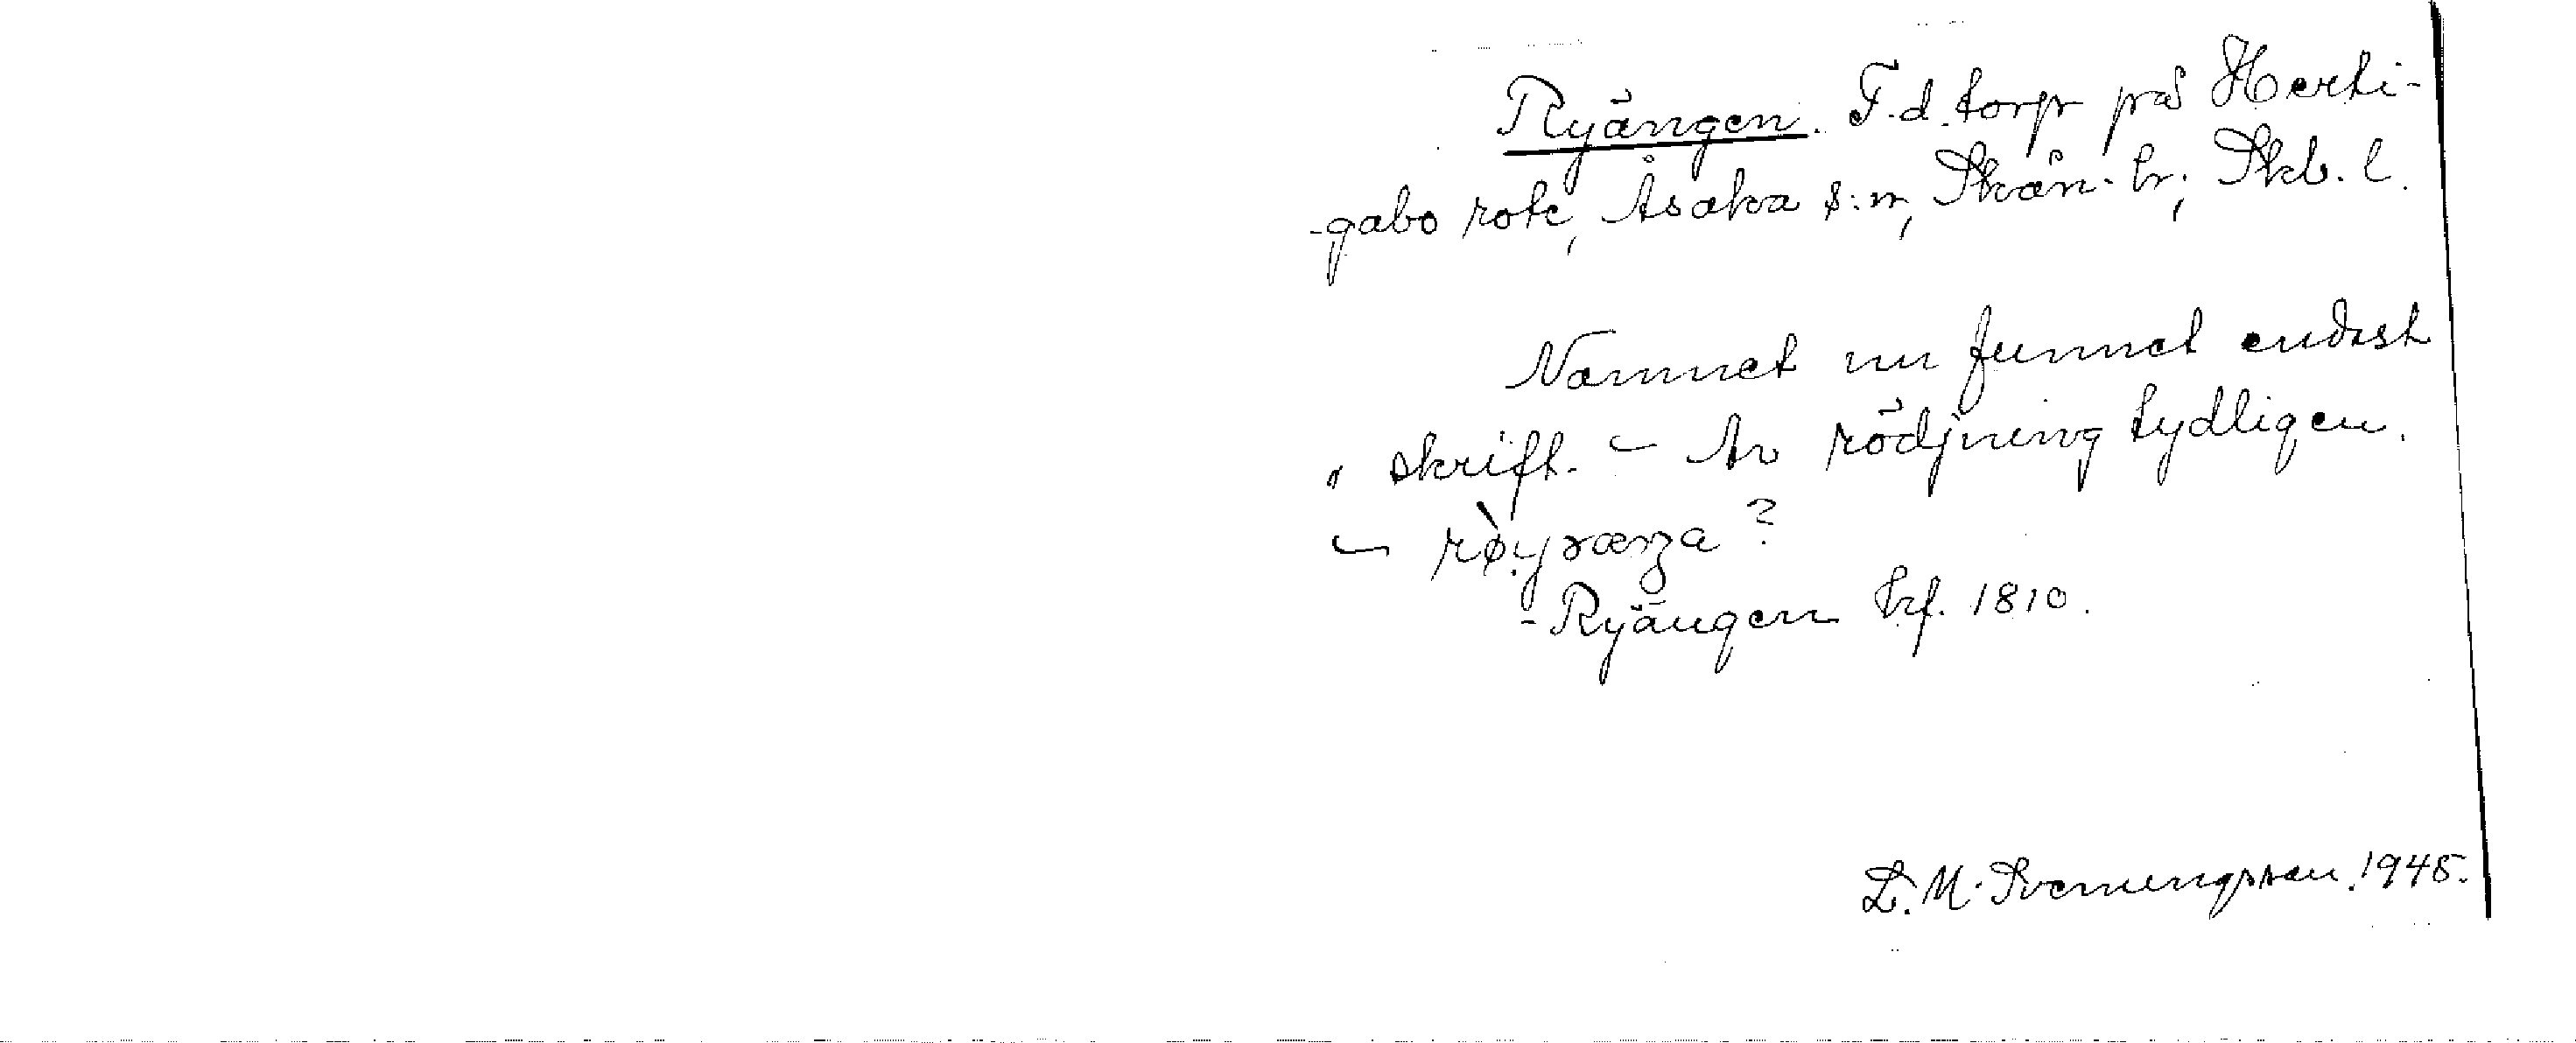 Ryängen. F.d. torp på Herti-
-gabo rote, Åsaka s:n, Skån. hr, Skb. l.
Namnet nu funnet endast
i skrift. - Av rödjning tydligen.
- rø̀yræŋa?
- Ryängen hfl. 1810.
L. M. Svenungsson. 1945.